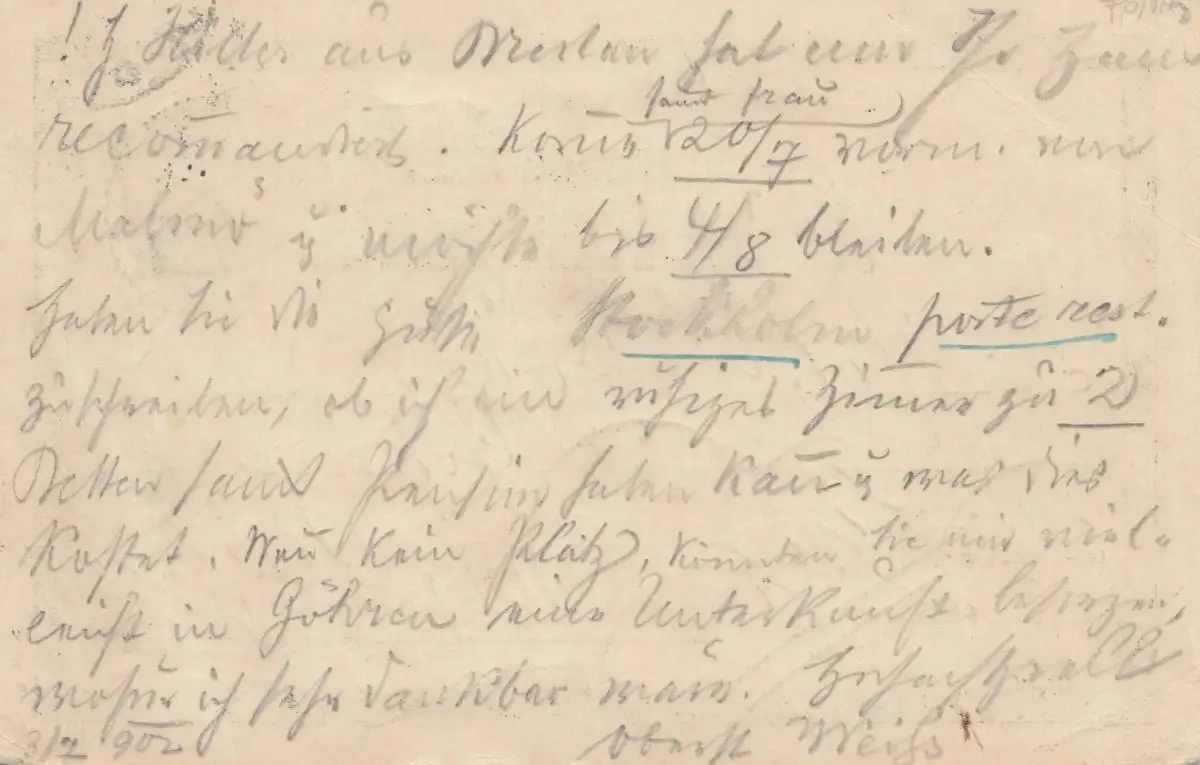 ! H Hiller aus Meslau hat mir Ihr Haus
samt Frau
recom̄andiert. Kom̄e 20/7 vorm. von
Malmö ü möchte bis 4/8 bleiben.
Haben Sie die Güte Stockholm poste rest.
zuschreiben, ob ich ein ruhiges Zim̄er zu 2
Betten samt Pension haben kan̄ ü was dies
kostet. Wen̄ kein Platz, könnten Sie mir viel-
leicht in Göhren eine Unterkunft besorgen,
wofür ich sehr dankbar wäre. Hochachtgsvoll
3/7 902 Oberst Weiß